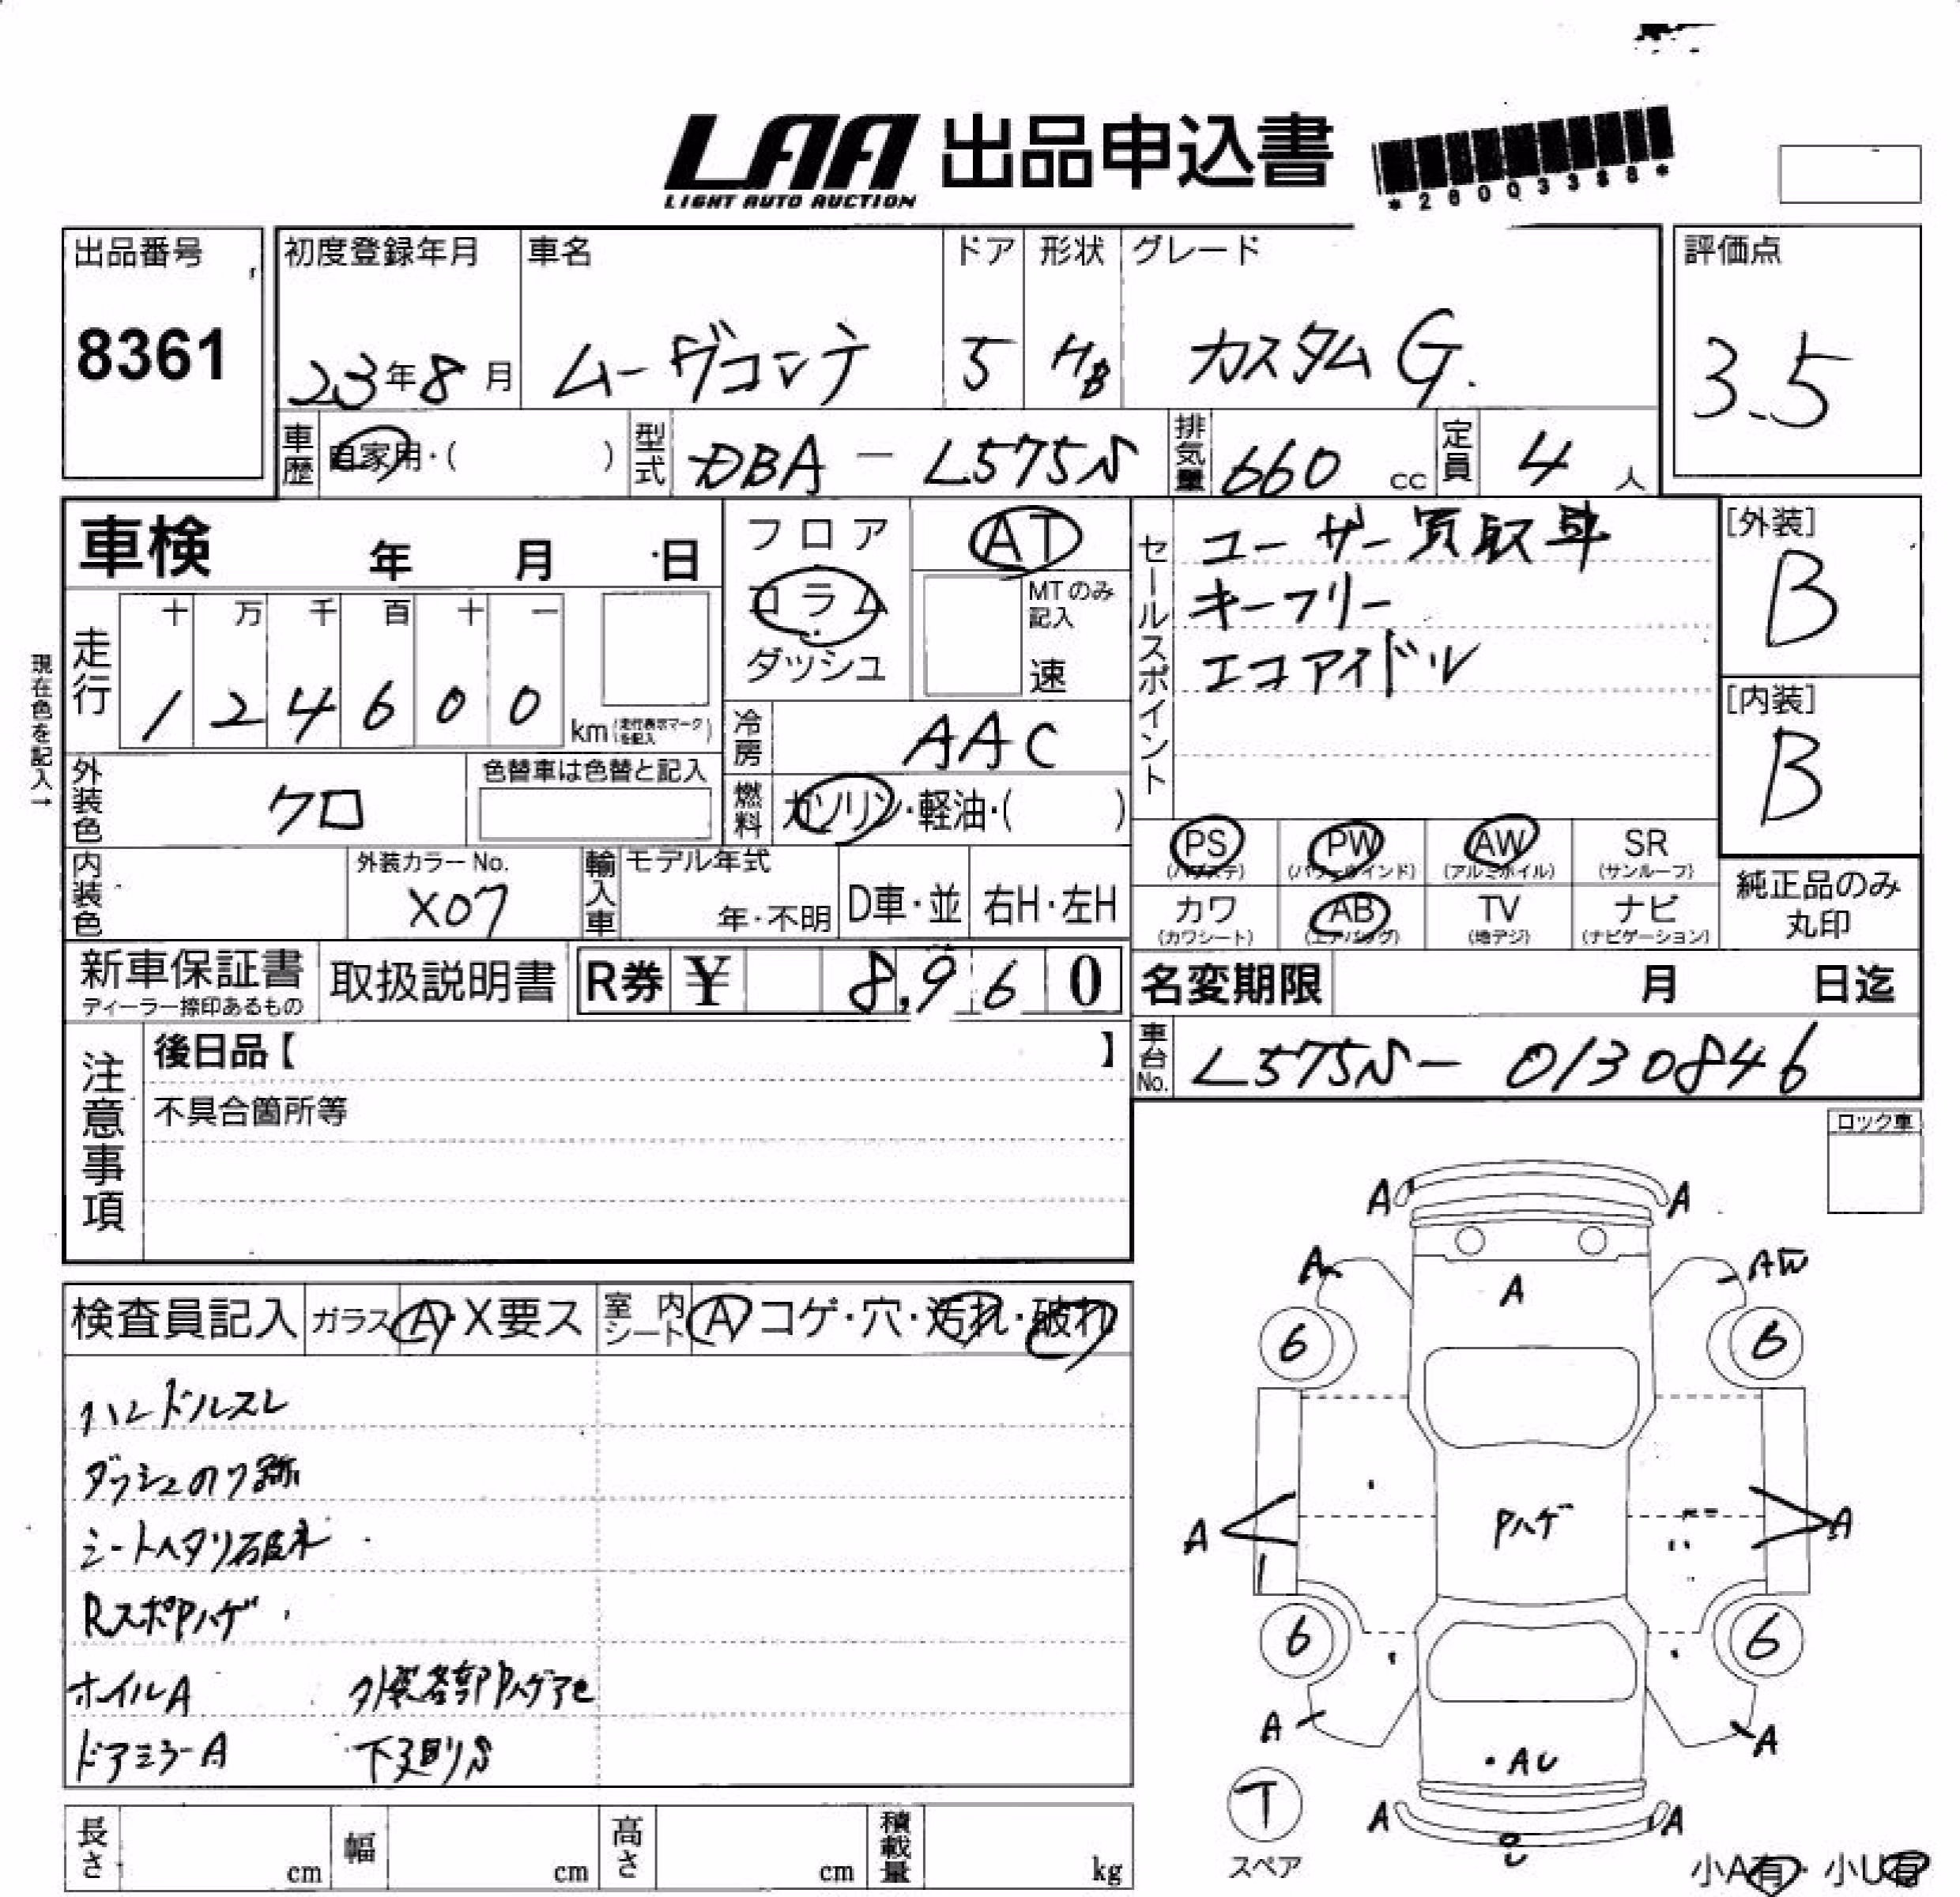 LAA 出品申込書
LIGHT AUTO AUCTION
*26003388*
出品番号
8361
初度登録年月
23年8月
車名
ムーヴコンテ
ドア
5
形状
HB
グレード
カスタムG.
評価点
3.5
車歴
自家用・( )
型式
DBA-L575S
排気量
660 cc
定員
4人
車検 年 月 日
フロア
コラム
ダッシュ
AT
MTのみ記入
速
セールスポイント
ユーザー買取車
キーフリー
エコアイドル
[外装]
B
[内装]
B
現在色を記入→
走行
十 万 千 百 十 一
1 2 4 6 0 0
km (走行表示マークを記入)
冷房
AAC
外装色
クロ
色替車は色替と記入
燃料
ガソリン・軽油・( )
PS (パワステ)
PW (パワーウインド)
AW (アルミホイル)
SR (サンルーフ)
内装色
外装カラーNo.
X07
輸入車
モデル年式
年・不明
D車・並
右H・左H
カワ (カワシート)
AB (エアバッグ)
TV (地デジ)
ナビ (ナビゲーション)
純正品のみ
丸印
新車保証書
ディーラー捺印あるもの
取扱説明書
R券 ¥ 8,960
名変期限 月 日迄
注意事項
後日品【 】
不具合箇所等
車台No.
L575S-0130846
ロック車
検査員記入
ガラス A・X要ス
室内シート A コゲ・穴・汚れ・破れ
ハンドルスレ
ダッシュのり跡
シートヘタリ破れ
RスポPハゲ
ホイルA
外装各部Pハゲアセ
ドアミラーA
下廻りS
A A
A AW
A
6 6
A Pハゲ A
6 6
A A
AU
T
スペア
A A
U
小A有・小U有
長さ cm
幅 cm
高さ cm
積載量 kg